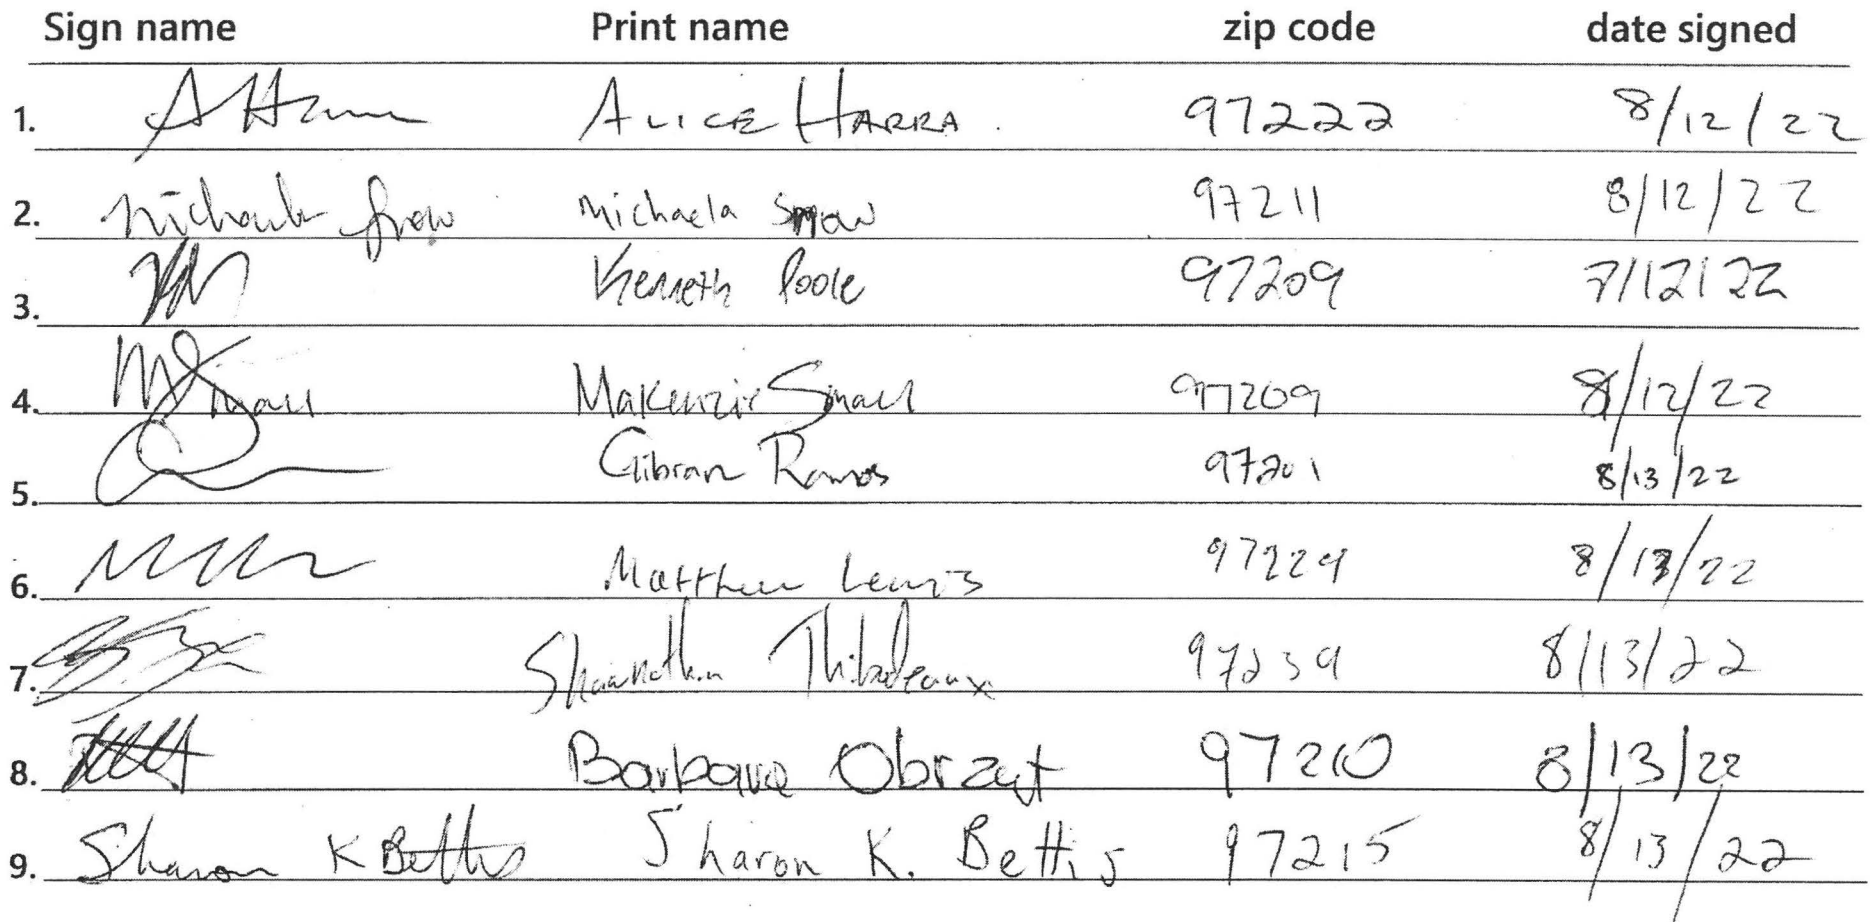 Sign name Print name zip code date signed
1. ALICE HARRA. 97222 8/12/22
2. Michaela Snow 97211 8/12/22
3. Kenneth Poole 97209 7/12/22
4. MSmall Makenzie Small 97209 8/12/22
5. Gibran Ramos 97201 8/13/22
6. Matthew Lewis 97229 8/13/22
7. Thibodeaux 97239 8/13/22
8. Barbara Obrzut 97210 8/13/22
9. Sharon K Bettis Sharon K. Bettis 97215 8/13/22